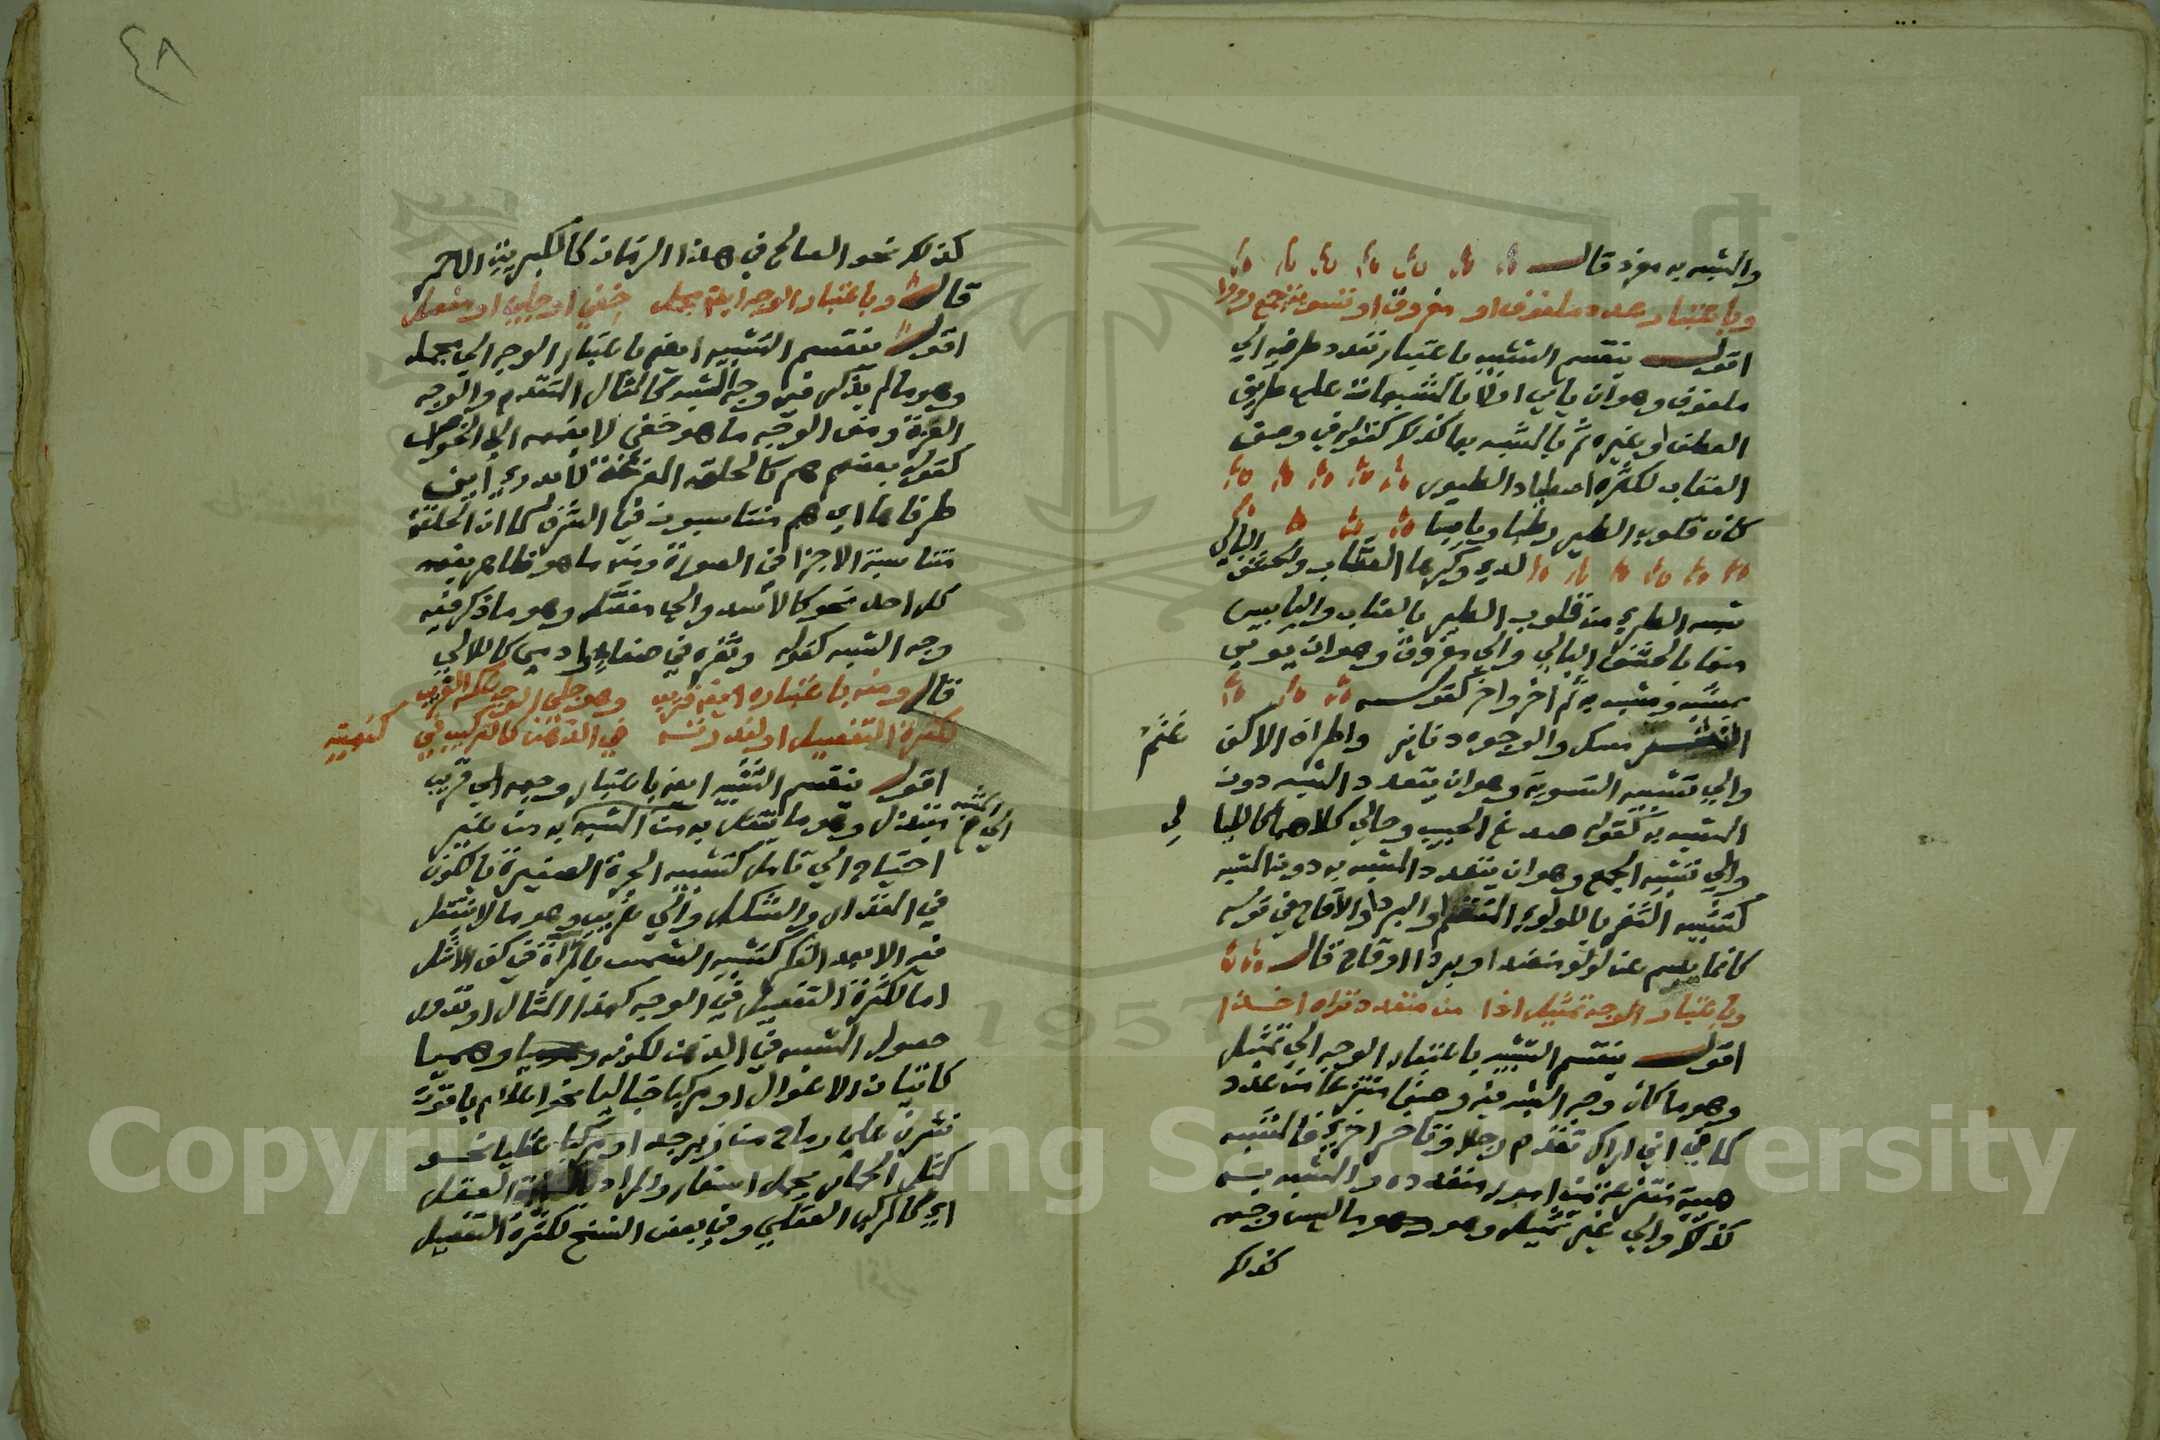 والمشبه به مفرد قال
وباعتبار عدد ملفوف او مفروق او تسوية جمع راوا
اقول ينقسم التشبيه باعتبار تعدد طرفيه الي
ملفوف وهو ان ياتي اولا بالمشبهات علي طريق
العطف او غيره ثم بالمشبه بها كذلك كقوله في وصف
العقاب لكثرة اصطياد الطيور
كان قلوب الطير رطبا ويابسا
لدي وكرها العناب والحشف البالي
شبه الطري من قلوب الطير بالعناب واليابس
منها بالحشف البالي والي مفروق وهو ان يوتي
بمشبه ومشبه به ثم اخر واخر كقوله
النشر مسك والوجوه دنانير واطراف الاكف عنم
والي تشبيه التسوية وهو ان يتعدد المشبه دون
المشبه به كقوله صدغ الحبيب وحالي كلاهما كالليالي
والي تشبيه الجمع وهو ان يتعدد المشبه به دون المشبه
كتشبيه الثغر باللولو المنظم او البرد او الاقاح في قوله
كانما يبسم عن لولو منضد او برد او اقاح قال
وباعتبار الوجه تمثيل اذا من متعدد تراه اخذا
اقول ينقسم التشبيه باعتبار الوجه الي تمثيل
وهو ما كان وجه الشبه فيه وصفا منتزعا من عدد
كما في اني اراك تقدم رجلا وتاخر اخري فالمشبه
هيئة منتزعة من امور متعدده والمشبه به
كذلك والي غير تمثيل وهو وهو ما ليس وجهه
كذلك
٤٨
كذلك نحو الصالح في هذا الزمان كالكبريت الاحمر
قال وباعتبار الوجه ايضا مجمل خفي او جلي او مفصل
اقول ينقسم التشبيه ايضا باعتبار الوجه الي مجمل
وهو ما لم يذكر فيه وجه الشبه كالمثال المتقدم والوجه
العزة ومن الوجه ما هو خفي لا يفهمه الا الخواص
كقول بعضهم هم كالحلقه المفرغة لا يدري اين
طرفاها اي هم متناسبون في الشرف كما ان الحلقة
متناسبة الاجزا في الصورة ومنه ما هو ظاهر يفهمه
كل احد نحو كالاسد والي مفصل وهو ما ذكر فيه
وجه الشبه كقوله وثغره في صفاء وادمعي كاللالي
قال ومنه باعتباره ايضا قريب وهو جلي الوجه عكسه الغريب
لكثرة التفصيل او لندرته في الذهن كالتركيب في كنهيته
اقول ينقسم التشبيه ايضا باعتبار وجهه الي قريب
مبتذل وهو ما ينتقل به من المشبه به من غير
الي المشبه صح
احتياج الي تامل كتشبيه الجرة الصغيرة بالكوز
في المقدار والشكل والي غريب وهو ما لا ينتقل
فيه الا بعد الفكر كتشبيه الشمس بالمرآة في كف الاشل
اما لكثرة التفصيل في الوجه كهذا المثال او ندور
حصول المشبه في الذهن لكونه وهميا
كانياب الاغوال او مركبا خياليا نحو اعلام ياقوت
نشرن علي رماح من زبرجد او مركبا عقليا نحو
كمثل الحمار يحمل اسفارا والمراد العقل
اي كالمركب العقلي وفي بعض النسخ لكثرة التفصيل